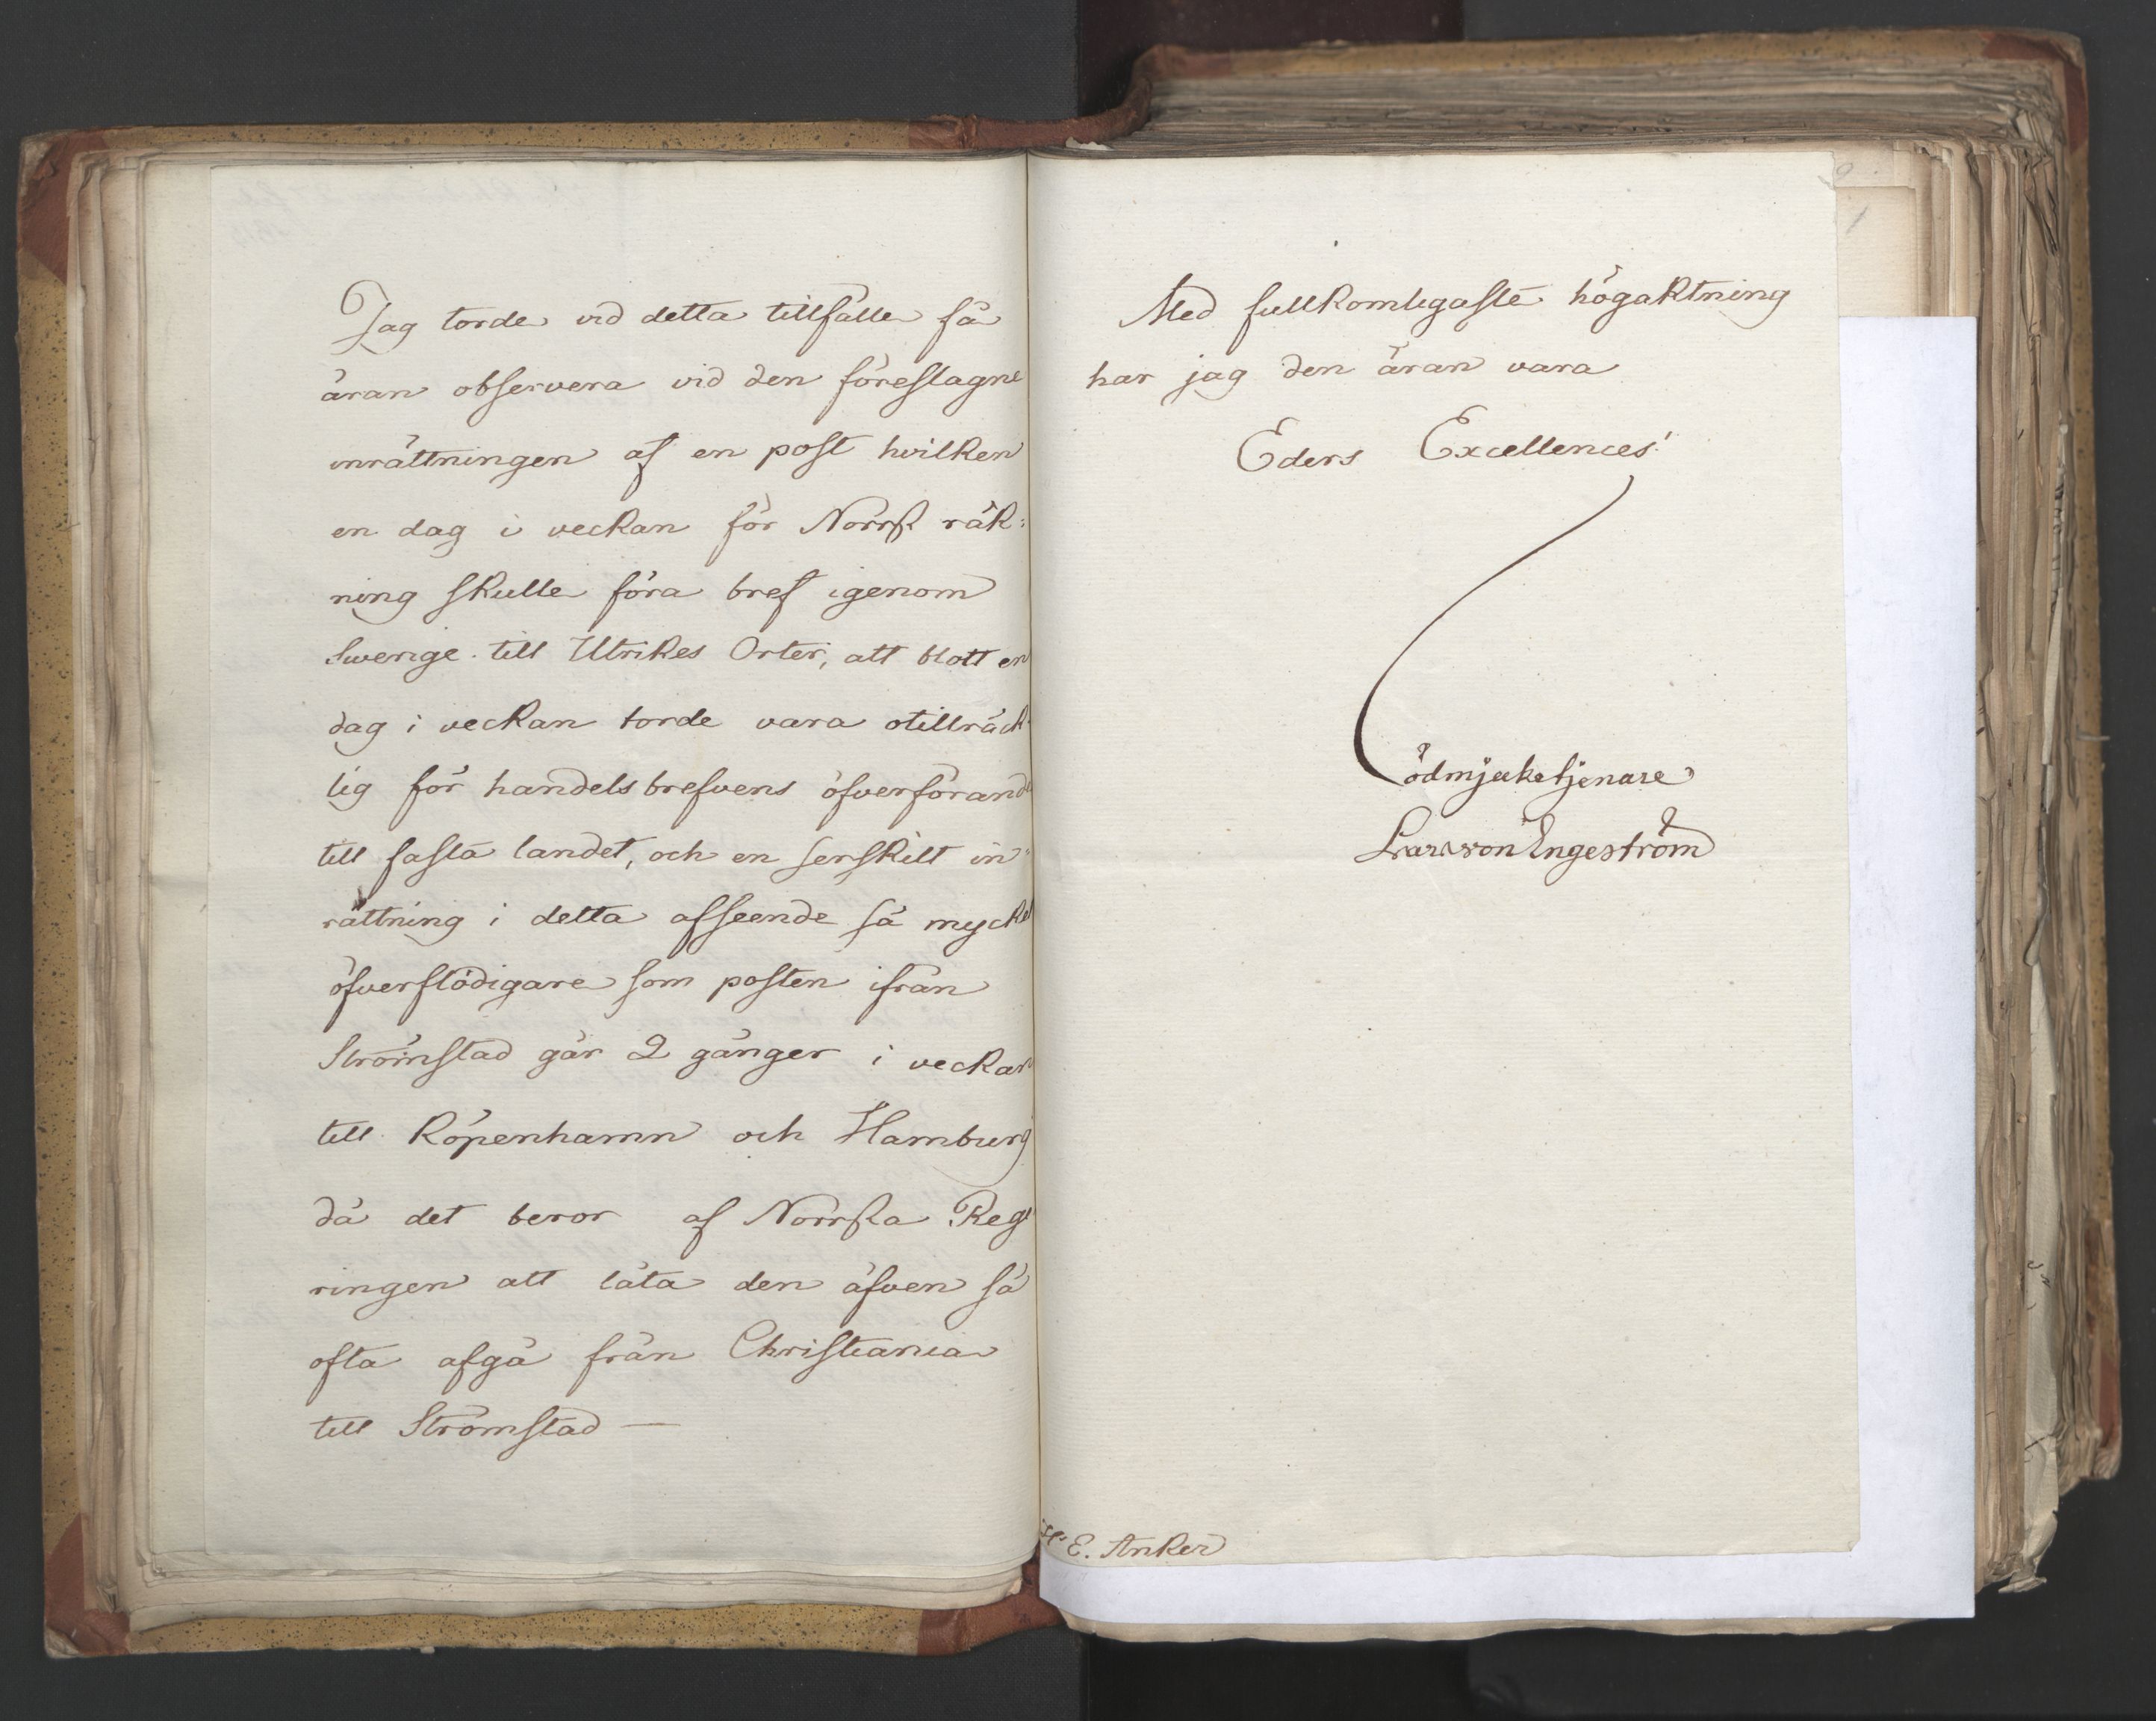 Jag torde vid detta tillfälle få
äran observera vid den föreslagne
inrättningen af en post hvilken
en dag i veckan för Norrsk räk:
ning skulle föra bref igenom
Swerige till Utrikes Orter, att blott en
dag i veckan torde vara otillräck-
lig för handelsbrefvens öfverförande
till fasta landet, och en serskilt in-
rättning i detta afseende så mycket
öfverflödigare som posten ifrån
Strömstad går 2 gånger i veckan
till Köpenhamn och Hamburg
då det beror af Norrska Rege
ringen att låta den äfven så
ofta afgå från Christiania
till Strömstad —
Med fullkomligaste högaktning
har jag den äran vara
Eders Excellences
ödmjuke tjenare
Lars von Engeström
E. Anker